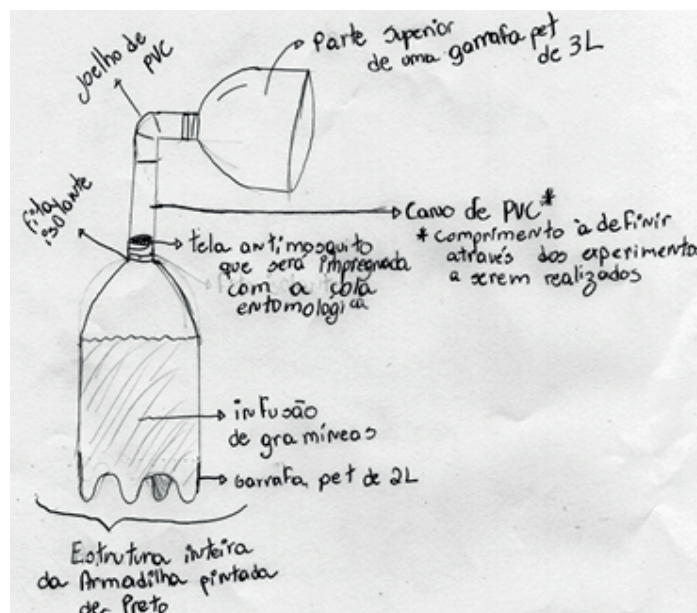 Parte superior
de uma garrafa pet
de 3L
Joelho de
PVC
Fita
isolante
Cano de PVC*
* comprimento à definir
através dos experimento
a serem realizados
tela antimosquito
que será impregnada
com a cola
entomologica
infusão
de gramíneas
Garrafa pet de 2L
Estrutura inteira
da Armadilha pintada
de Preto